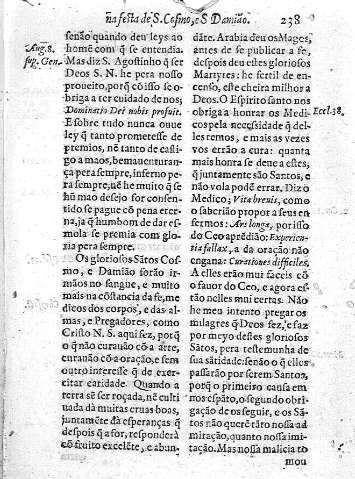 na festa de S. Cosmo, e S Damião. 238
senão quando deu leys ao
homẽ com q̃ se entendia.
Aug. 8. sup. Gen.
Mas diz S. Agostinho q̃ ser
Deos S. N. he pera nosso
proueito, porq̃ cõ isso se o-
briga a ter cuidado de nos;
Dominatio Dei nobis profuit.
E sobre tudo nunca ouue
ley q̃ tanto promettesse de
premios, nẽ tanto de casti-
go a maos, bemauenturan-
ça pera sempre, inferno pe-
ra sempre, nẽ he muito q̃ se
hũ mao desejo for consen-
tido se pague cõ pena eter-
na, ja q̃ hum bem de dar es-
mola se premia com glo-
ria pera sempre.
Os gloriosos Sãtos Cos-
mo, e Damião serão ir-
mãos no sangue, e muito
mais na cõstancia da fe, me
dicos dos corpos, e das al-
mas, e Pregadores, como
Cristo N. S. aqui fez, porq̃
o q̃ não curauão cõ a arte,
curauão cõ a oração, e sem
outro interesse q̃ de exer-
citar caridade. Quando a
terra sẽ ser roçada, nẽ culti
uada dà muitas eruas boas,
juntamẽte dà esperanças q̃
despois q̃ a for, responderà
cõ fruito excelẽte, e abun-
dãte. Arabia deu os Mages,
antes de se publicar a fe,
despois deu estes gloriosos
Martyres: he fertil de en-
censo, este cheira milhor a
Deos. O Espirito santo nos
obriga a honrar os Medi-
Eccl. 38.
cos pela necessidade q̃ del-
les temos, e mais as vezes
vos errão a cura: quanta
mais honra se deue a estes,
q̃ juntamente são Santos, e
não vola podẽ errar. Diz o
Medico; Vita breuis, como
o saberião propor a seus en-
fermos: Ars longa, por isso
do Ceo aprẽdião: Experien-
tia fallax, a da oração não
engana: Curationes difficiles,
A elles erão mui faceis cõ
o fauor do Ceo, e agora es-
tão nelles mui certas. Não
he meu intento pregar os
milagres q̃ Deos fez, e faz
por meyo destes gloriosos
Sãtos, pera testemunha de
sua sãtidade: senão o q̃ elles
passarão por serem Santos,
porq̃ o primeiro causa em
nos espãto, o segundo obri-
gação de os seguir, e os Sã-
tos não querẽ tãto nossa ad
miração, quanto nossa imi-
tação. Mas nossa malicia to
mou